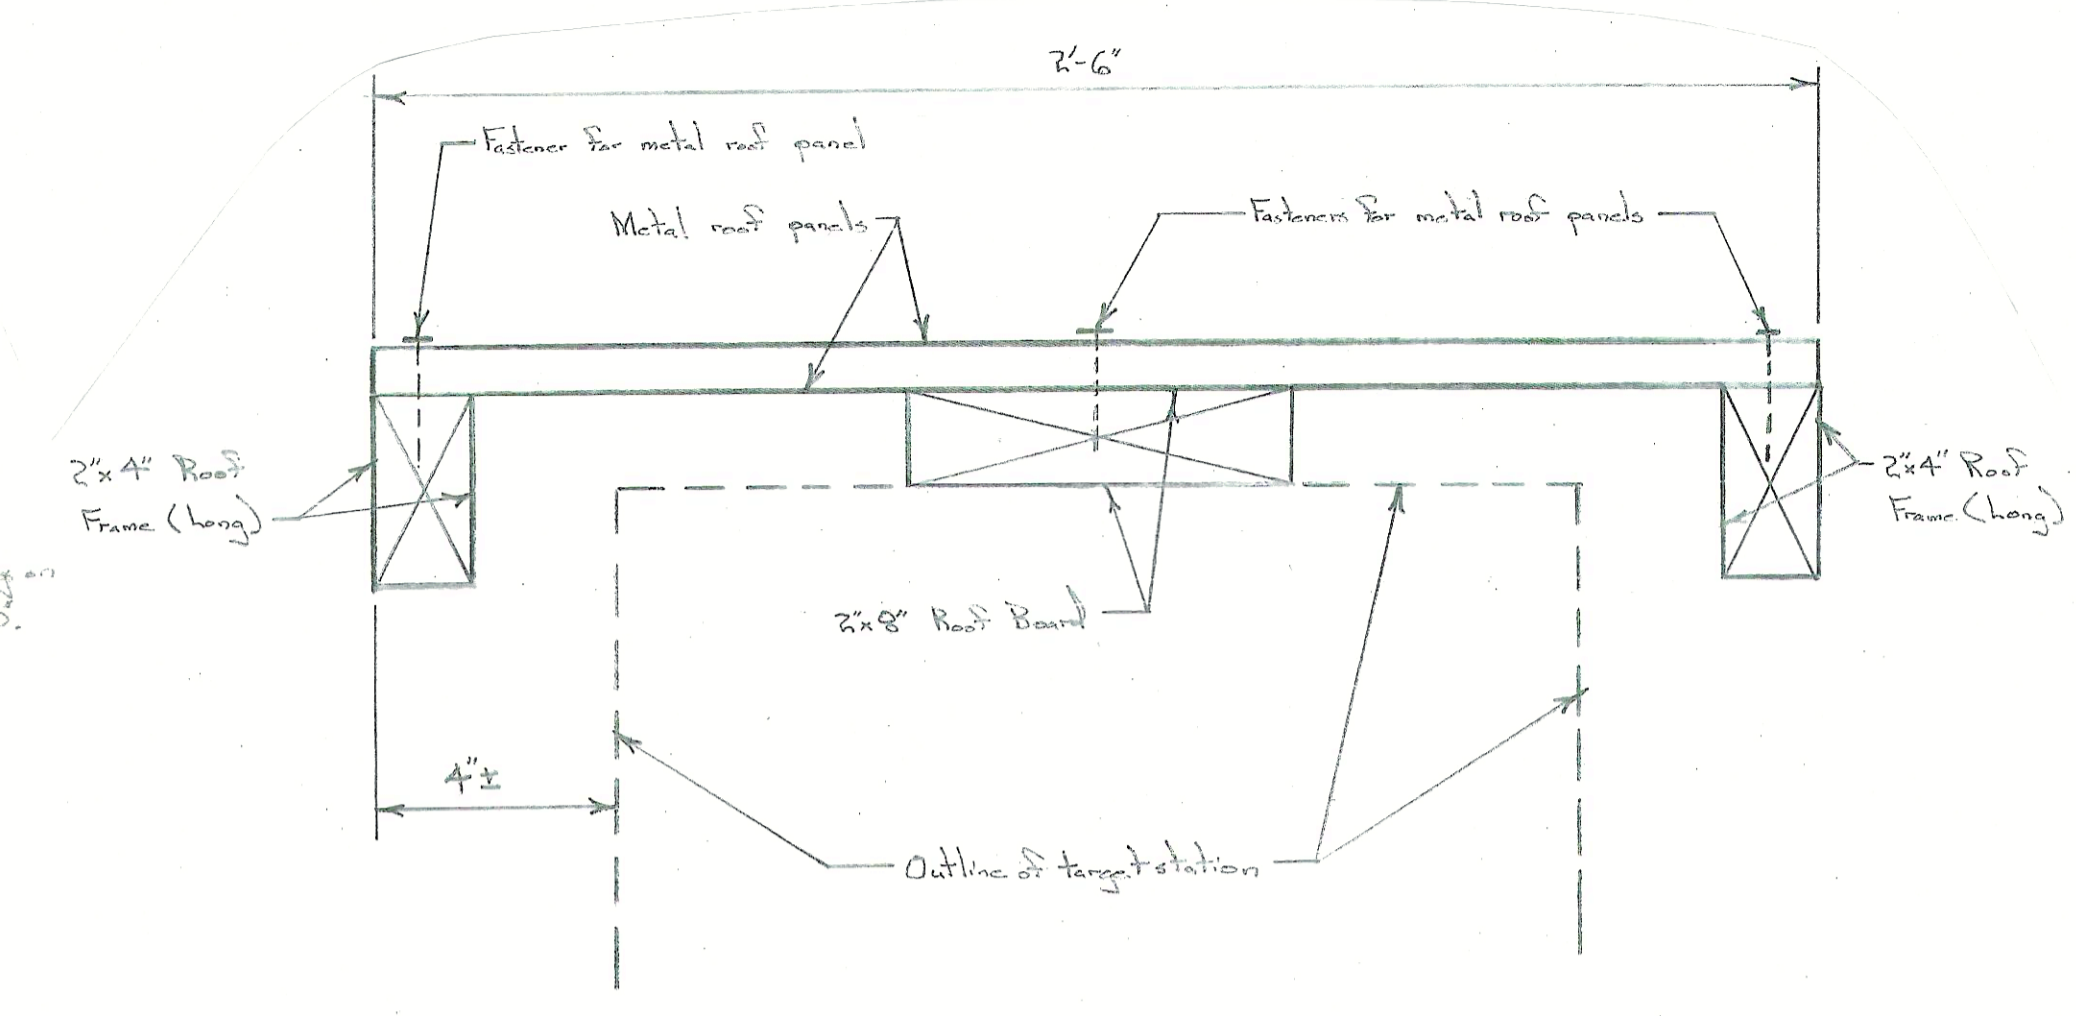 2'-6"
Fastener for metal roof panel
Metal roof panels
Fasteners for metal roof panels
2"x4" Roof
Frame (Long)
2"x4" Roof
Frame (Long)
on
2"x8" Roof Board
4"±
Outline of target station